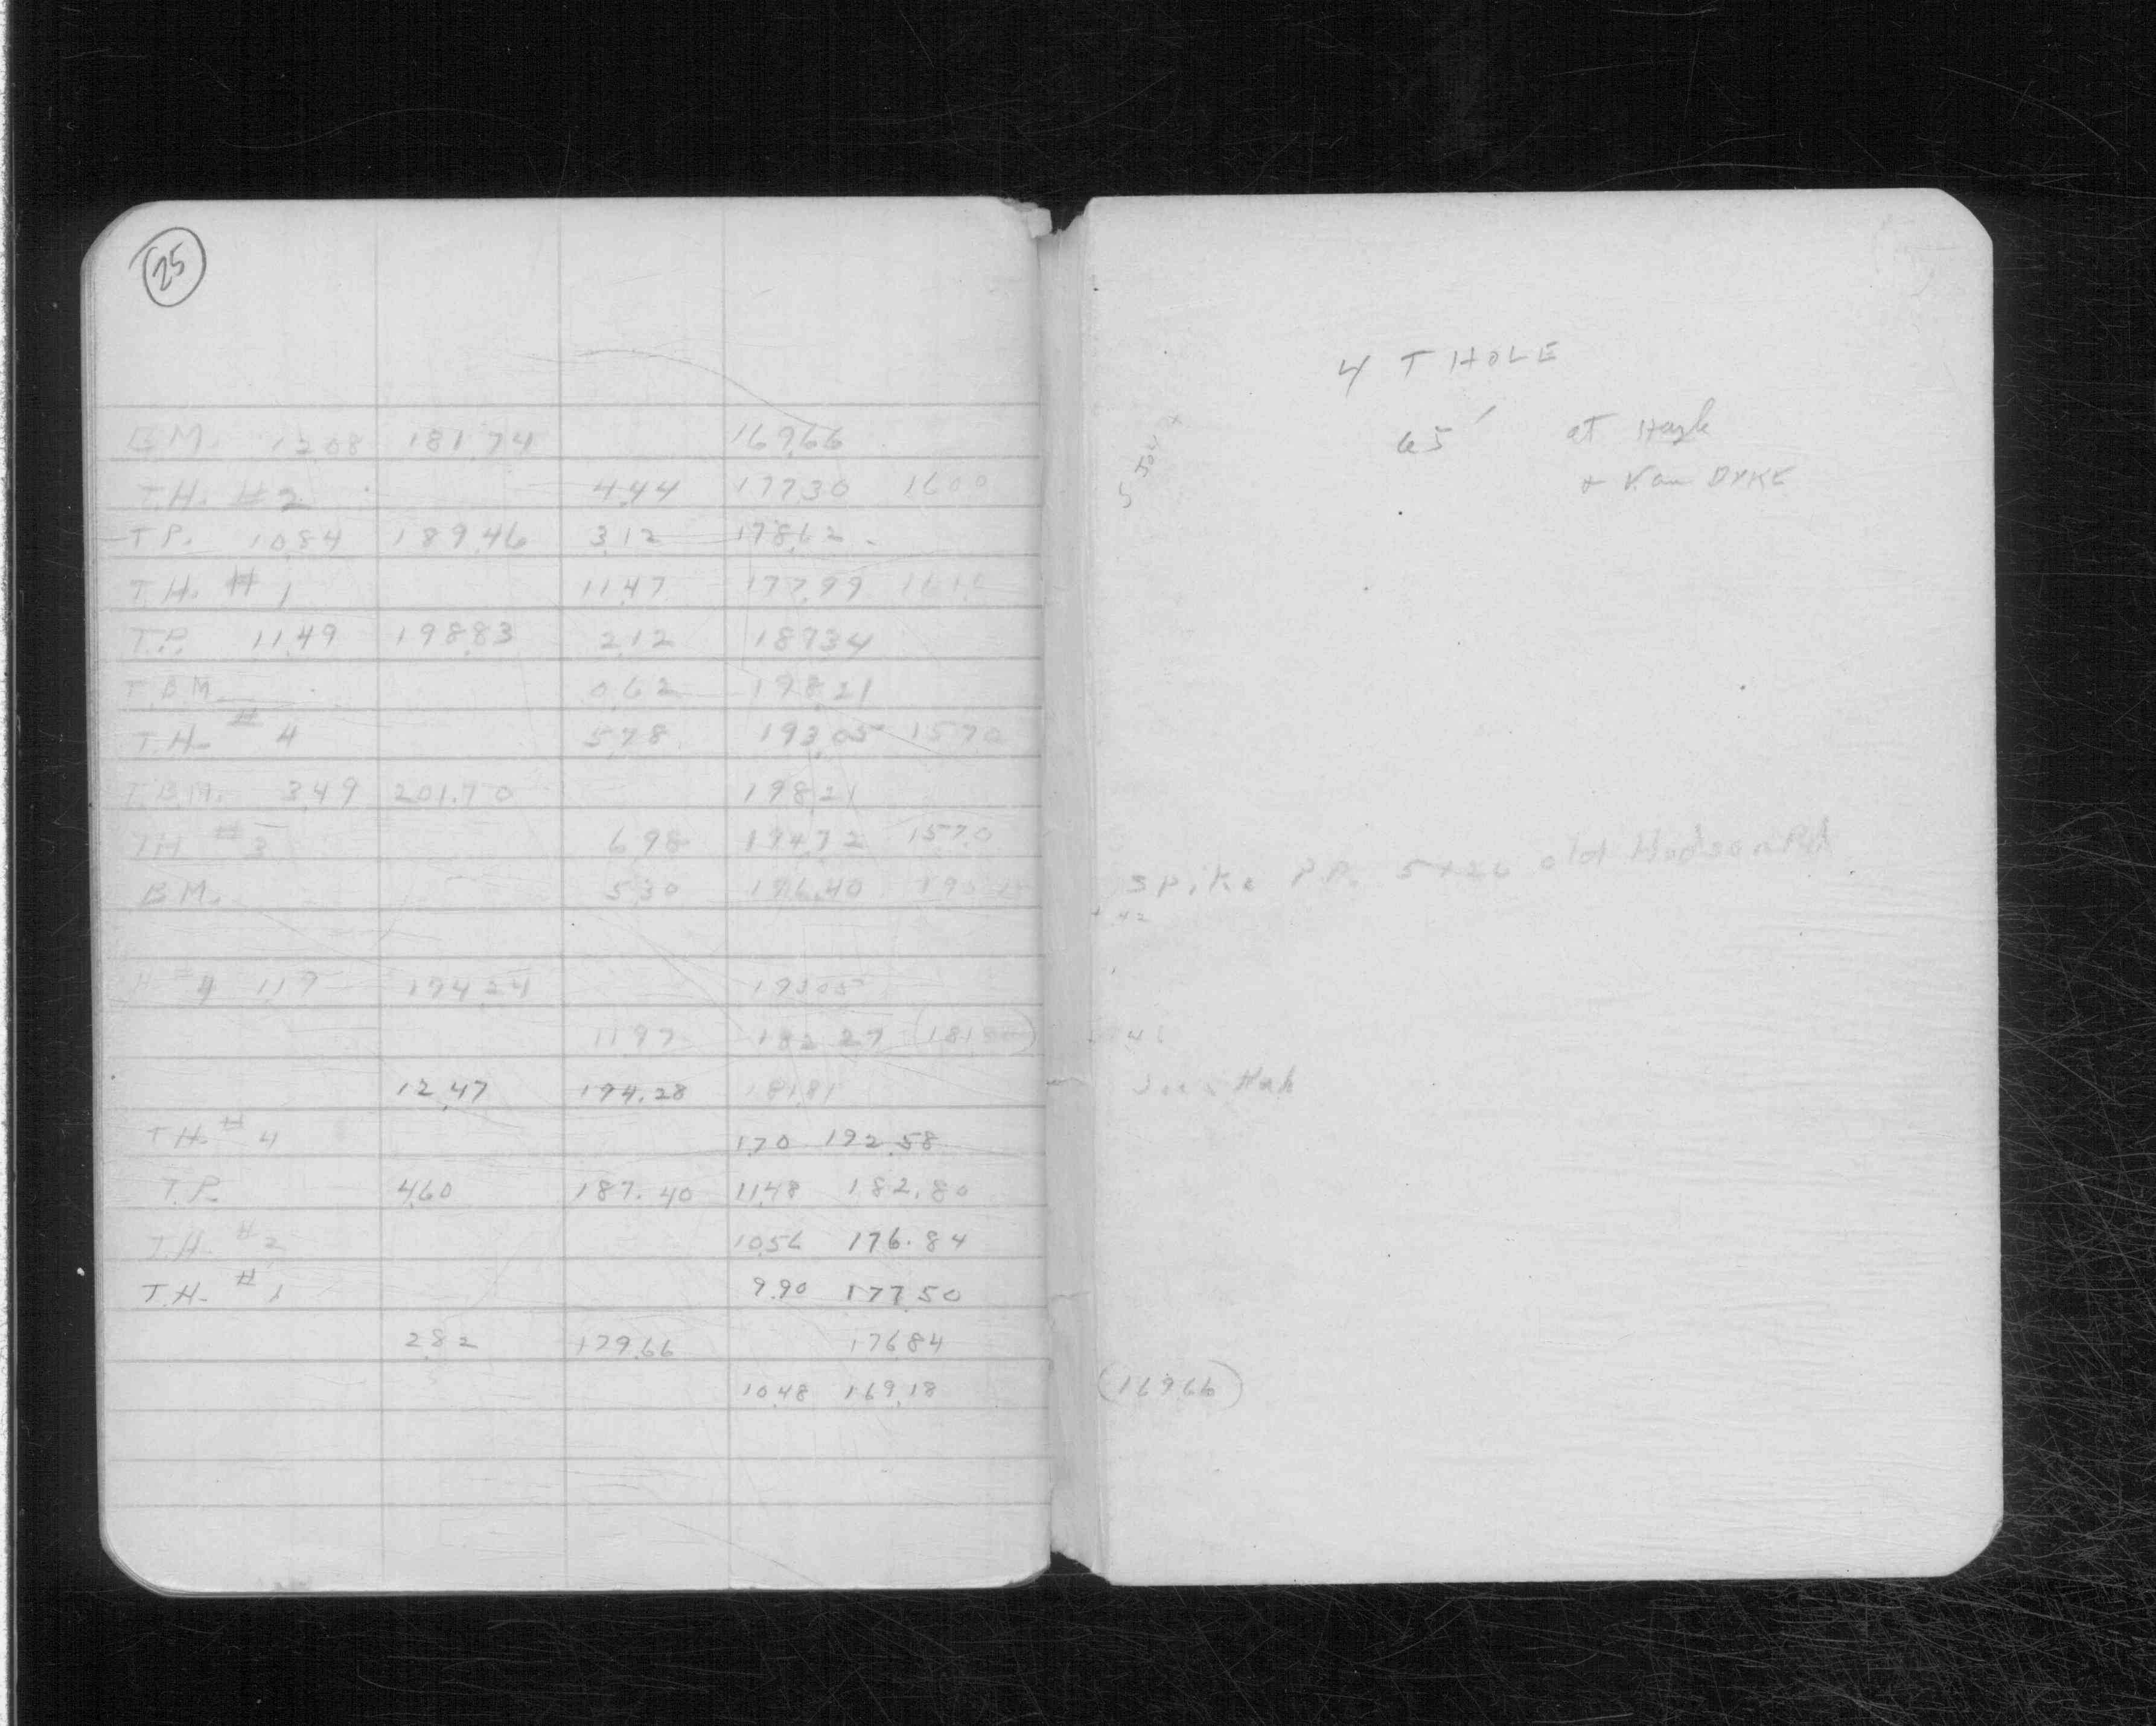 25
B.M. 12.08 181.74 169.66
T.H. #2 4.44 177.30 160.0
T.P. 10.84 189.46 3.12 178.62
T.H. #1 11.47 177.99
T.P. 11.49 198.83 2.12 187.34
T.B.M. 0.62 198.21
T.H. #4 5.78 193.05 157.0
T.B.M. 3.49 201.70 198.21
T.H. #3 6.98 194.72 157.0
B.M. 5.30 196.40
#4 1.19 194.24 193.05
11.97 182.27
12.47 194.28 181.81
T.H. #4 1.70 192.58
T.P. 4.60 187.40 11.48 182.80
T.H. #2 10.56 176.84
T.H. #1 9.90 177.50
2.82 179.66 176.84
10.48 169.18
4 T HOLE
65' at
+ Van DYKE
Spike P.P. 5+20 old Hudson Rd
(169.66)